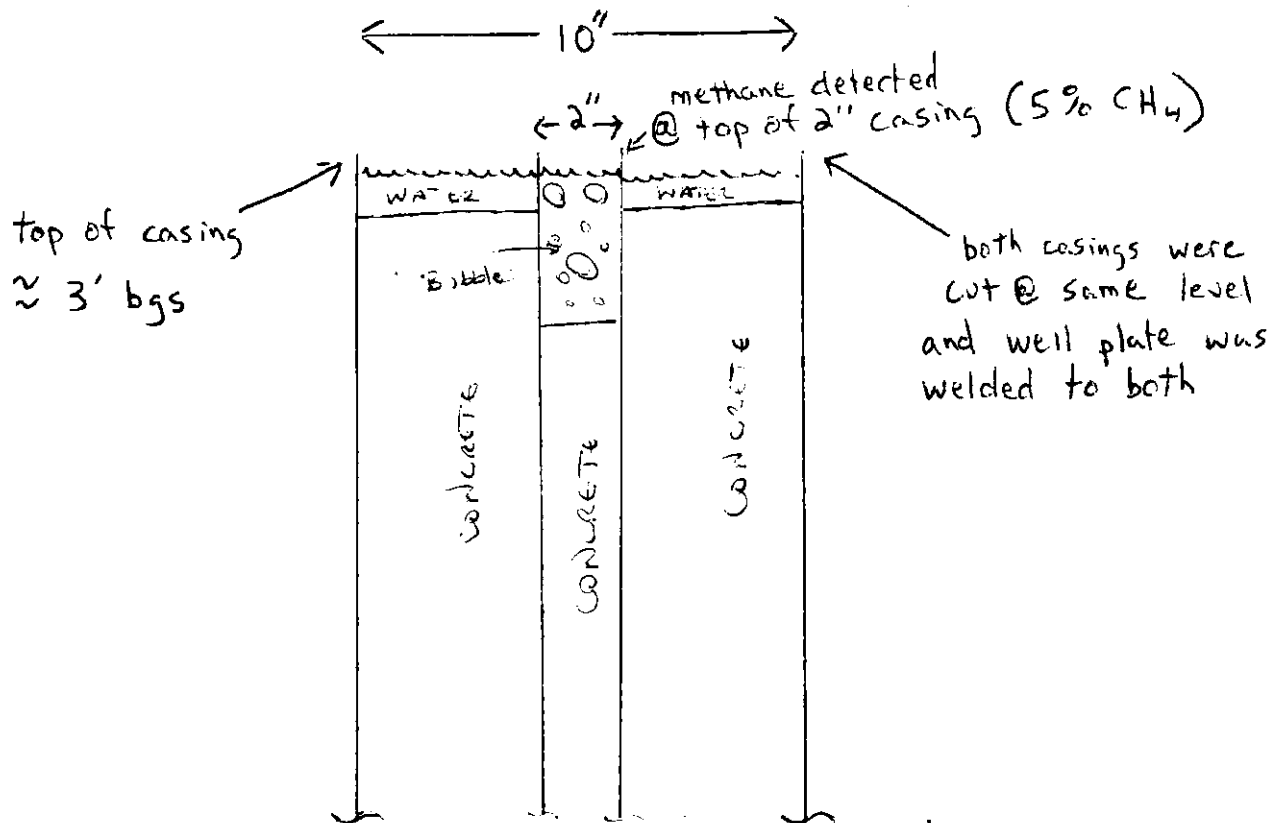 10"
2"
methane detected
@ top of 2" casing (5% CH4)
WATER
WATER
top of casing
≈ 3' bgs
Bubble
both casings were
cut @ same level
and well plate was
welded to both
CONCRETE
CONCRETE
CONCRETE